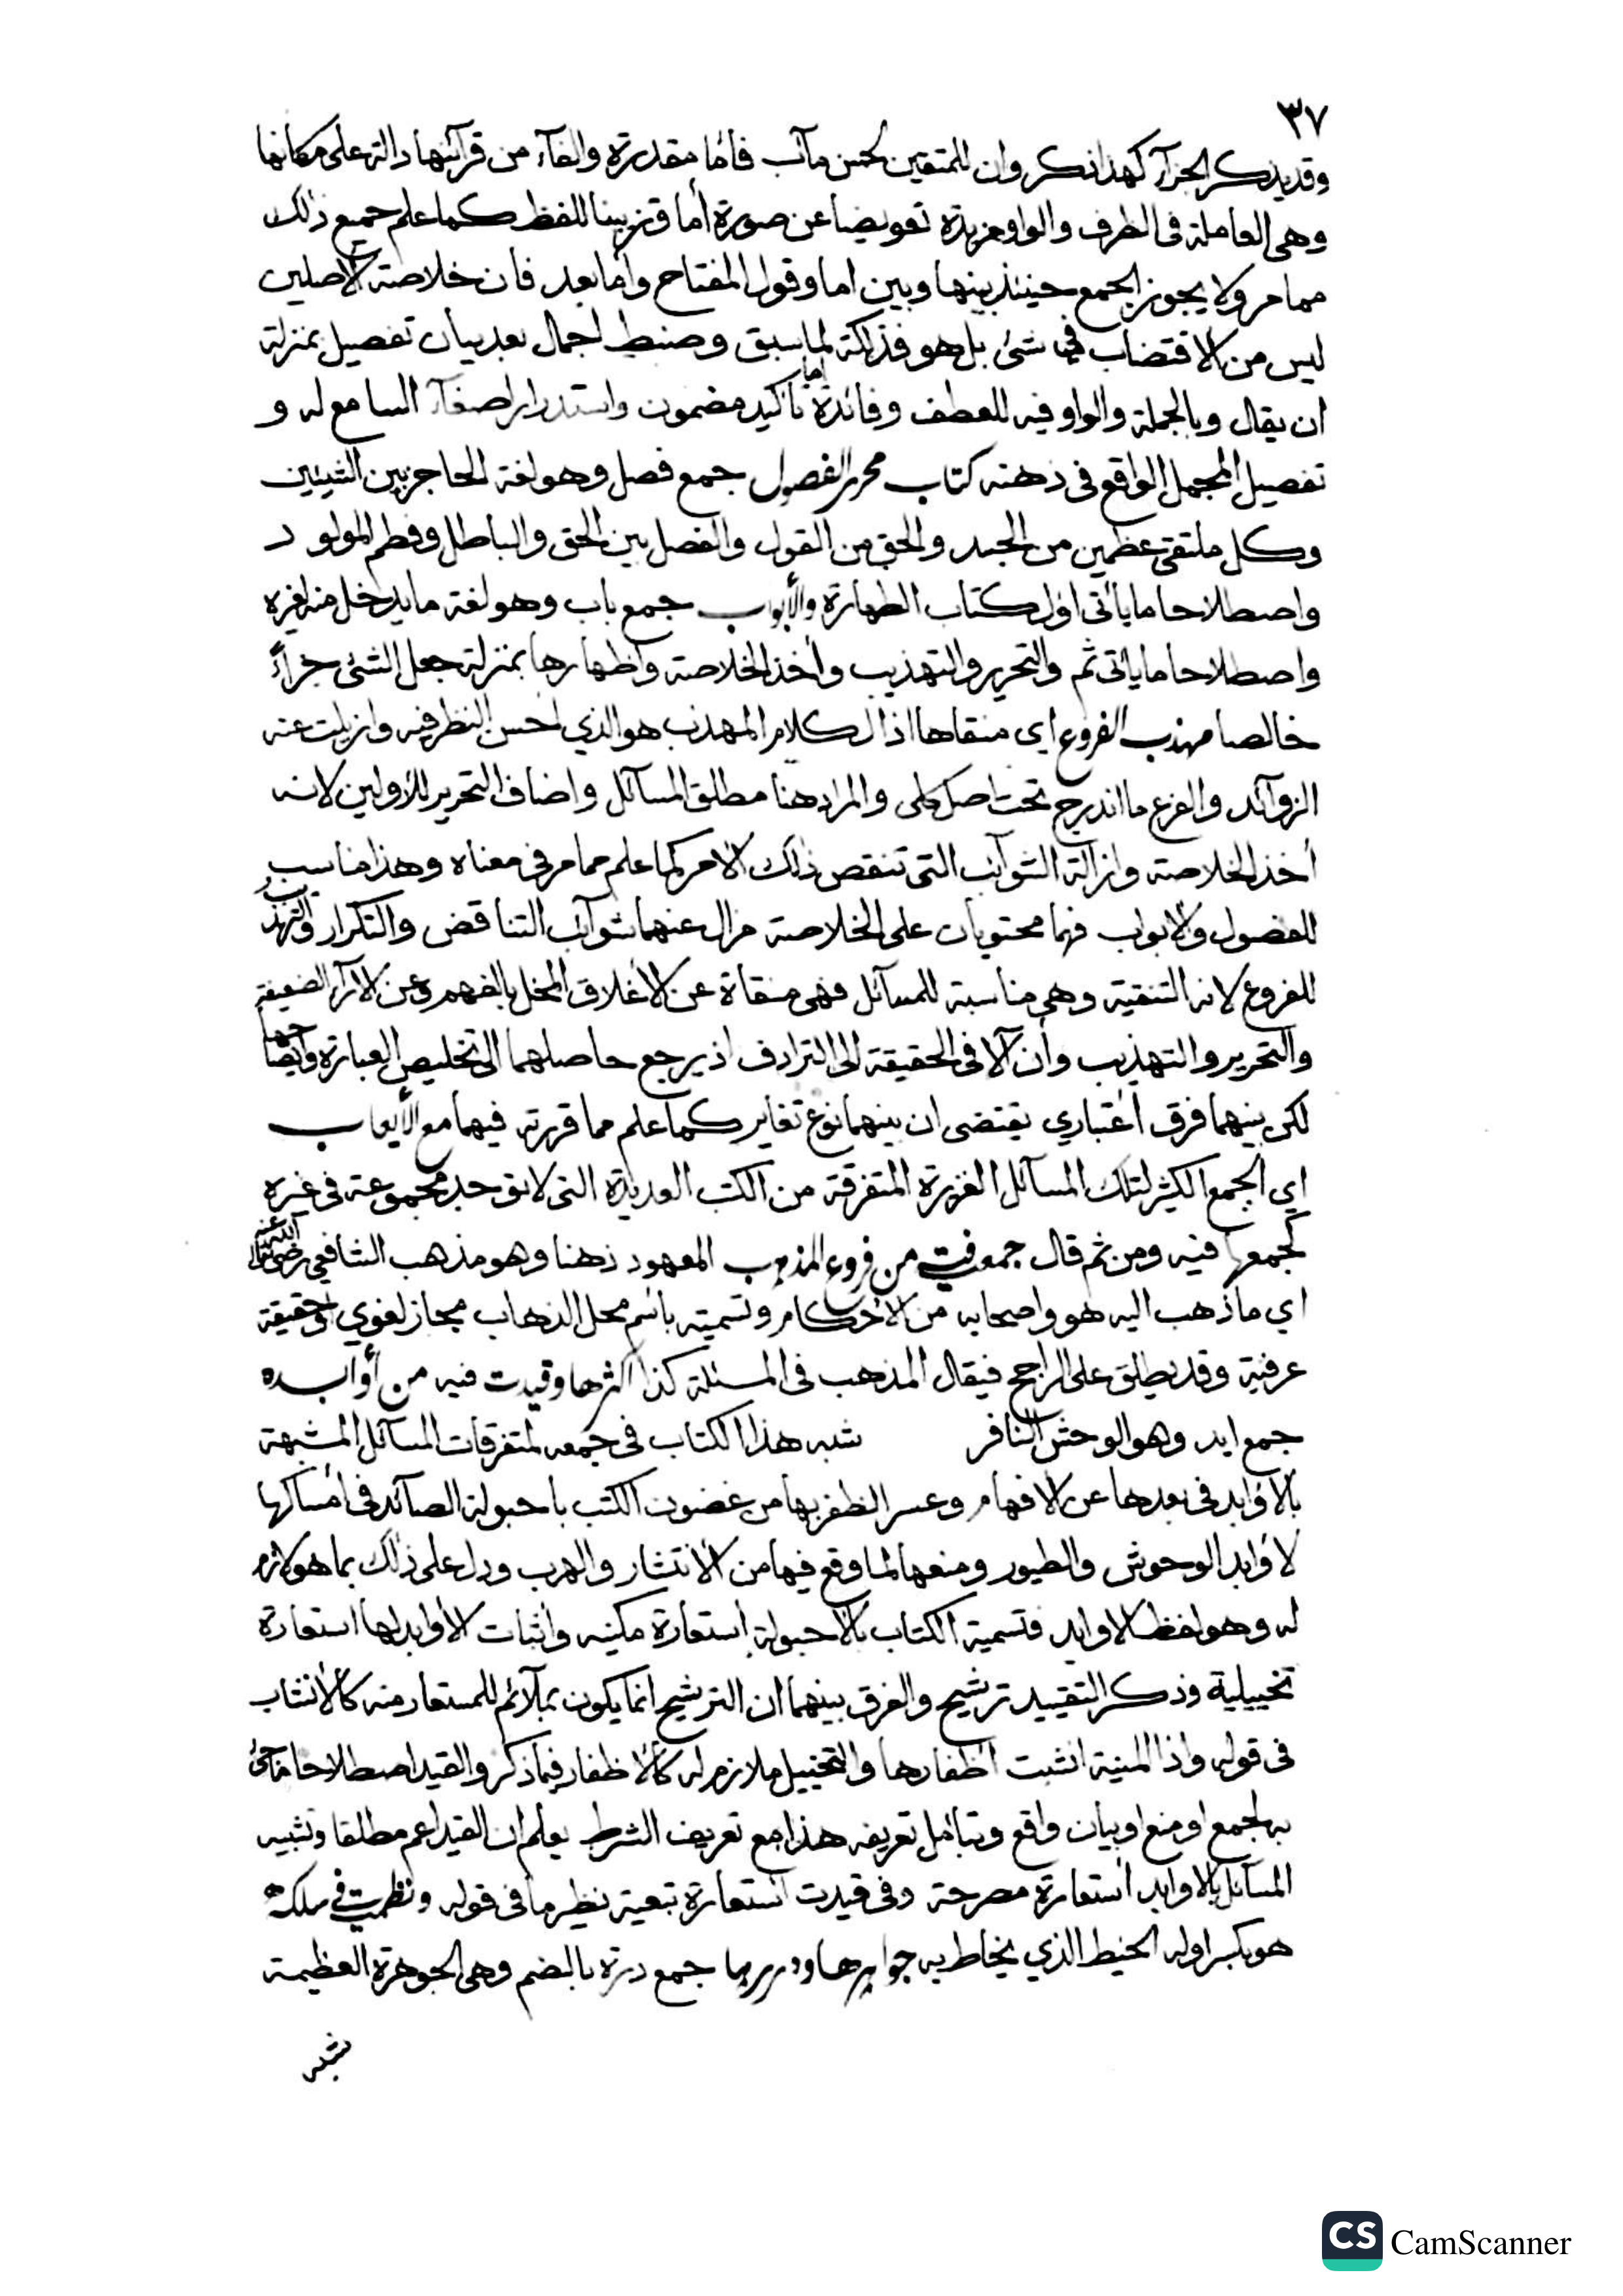 ٣٧
وقد يذكر الجزآء كهذا ذكر وان للمتقين لحسن مآب فامّا مقدرة والفآء من قرآئنها دالة على مكانها
وهى العاملة فى الظرف والواو مزيدة تعويضا عن صورة أما وتزيينا للفظ كما علم جميع ذلك
مما مر ولا يجوز الجمع حينئذ بينها وبين اما وقول المفتاح وأما بعد فان خلاصة الاصلين
ليس من الاقتضاب فى شئ بل هو فذلكة لما سبق وضبط اجمال بعد بيان تفصيل بمنزلة
أن يقال وبالجملة والواو فيه للعطف وفائدة اما تاكيد مضمون واستدرار اصغآء السامع له و
تفصيل المجمل الواقع فى ذهنه كتاب محرر الفصول جمع فصل وهو لغة الحاجز بين الشيئين
وكل ملتقى عظمين من الجسد والحق من القول والفصل بين الحق والباطل وفطم المولود
واصطلاحا ما يأتى اول كتاب الطهارة والأبواب جمع باب وهو لغة ما يدخل منه لغيره
واصطلاحا ما يأتى ثم والتحرير والتهذيب وأخذ الخلاصة واظهارها بمنزلة جعل الشئ حرا
خالصا مهذب الفروع اى منقاها اذ الكلام المهذب هو الذي احسن النظر فيه وازيلت عنه
الزوآئد والفرع ما اندرج تحت اصل كلى والمراد هنا مطلق المسآئل واضاف التحرير للأولين لانه
أخذ الخلاصة وازالة الشوآئب التى تنقص ذلك الامر كما علم مما مر فى معناه وهذا مناسب
للفصول والابواب فهما محتويان على الخلاصة مزال عنهما شوآئب التناقض والتكرار والتهذيب
للفروع لانه التنقية وهى مناسبة للمسآئل فهى منقاة عن الأغلاق المخل بالفهم وعن الارآء الضعيفة
والتحرير والتهذيب وأن آلا فى الحقيقة الى الترادف اذ يرجع حاصلهما الى تخليص العبارة وايضاحها
لكن بينهما فرق اعتباري يقتضى ان بينهما نوع تغاير كما علم مما قررته فيهما مع الأيعاب
اي الجمع الكثير لتلك المسآئل الغزيرة المتفرقة من الكتب العديدة التى لا توجد مجموعة فى غيره
كجمعها فيه ومن ثم قال جمعت فيه من فروع المذهب المعهود ذهنا وهو مذهب الشافعى رضى الله عنه
اي ما ذهب اليه هو واصحابه من الاحكام وتسميته باسم محل الذهاب مجاز لغوي او حقيقة
عرفية وقد يطلق على الراجح فيقال المذهب فى المسئلة كذا أكثرها وقيدت فيه من أوابده
جمع ابد وهو الوحش النافر شبه هذا الكتاب فى جمعه لمتفرقات المسآئل المشبهة
بالاوابد فى بعدها عن الافهام وعسر الظفر بها من غضون الكتب باحبولة الصآئد فى امساكها
لاوابد الوحوش والطيور ومنعها لما وقع فيها من الانتشار والهرب ودل على ذلك بما هو لازم
له وهو لفظ الاوابد فتسمية الكتاب بالاحبولة استعارة مكنيه واثبات الأوابد لها استعارة
تخييلية وذكر التقييد ترشيح والفرق بينهما ان الترشيح انما يكون بملآئم للمستعار منه كالأنشاب
فى قوله واذا المنية انشبت اظفارها والتخييل ملازم له كالاظفار فيما ذكر والقيد اصطلاحا ما جئ
به لجمع او منع او بيان واقع وبتأمل تعريفه هذا مع تعريف الشرط يعلم ان القيد اعم مطلقا وتشبيه
المسآئل بالاوابد استعارة مصرحة وفى قيدت استعارة تبعية نظير ما فى قوله ونظمت فى سلكه
هو بكسر اوله الخيط الذي يخاط به جواهرها ودررها جمع درة بالضم وهى الجوهرة العظيمة
شبه
CS CamScanner